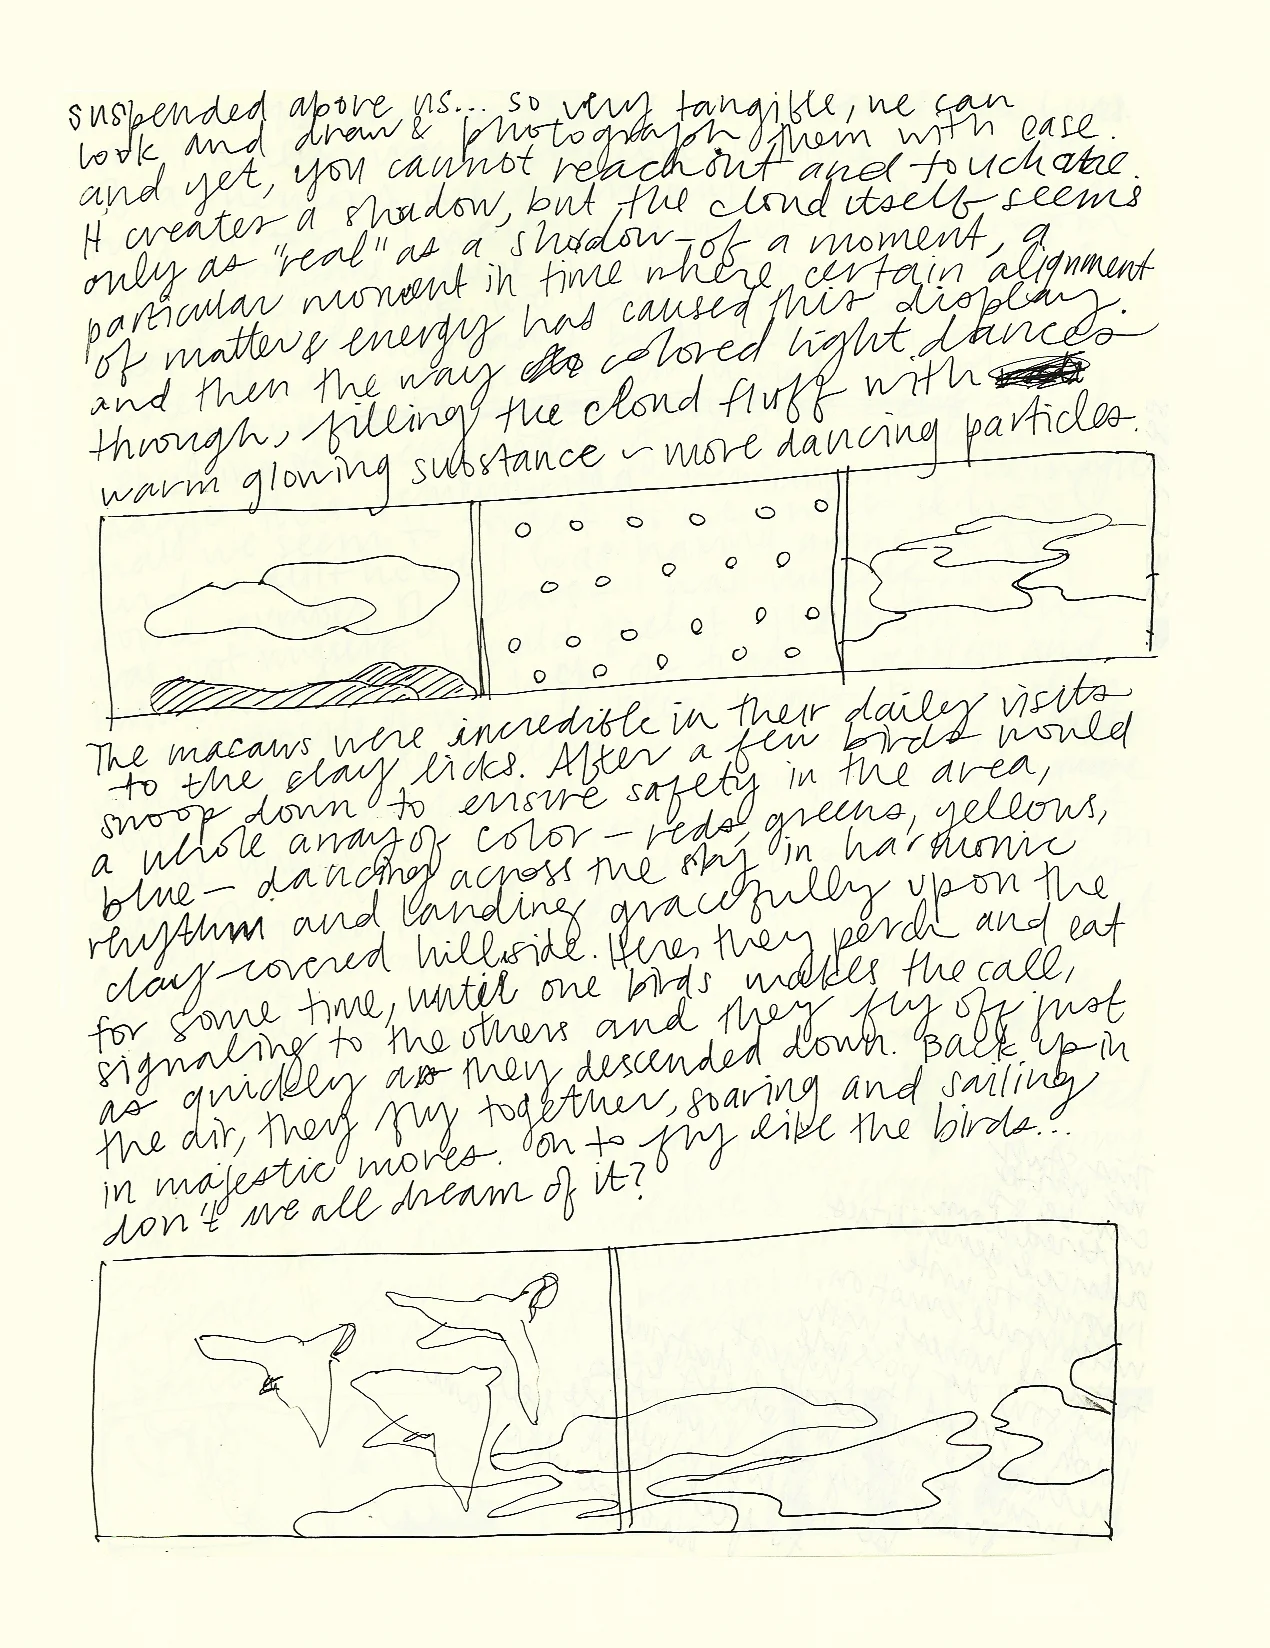 suspended above us... so very tangible, we can
look and draw & photograph them with ease.
and yet, you cannot reach out and touch one.
It creates a shadow, but the cloud itself seems
only as "real" as a shadow - of a moment, a
particular moment in time where certain alignment
of matter & energy has caused this display.
and then the way colored light dances
through, filling the cloud fluff with
warm glowing substance ~ more dancing particles.
The macaws were incredible in their daily visits
to the clay licks. After a few birds would
swoop down to ensure safety in the area,
a whole array of color - reds, greens, yellows,
blue - dancing across the sky in harmonic
rhythm and landing gracefully upon the
clay-covered hillside. Here, they perch and eat
for some time, until one birds makes the call,
signaling to the others and they fly off just
as quickly as they descended down. Back up in
the air, they fly together, soaring and sailing
in majestic moves. Oh to fly like the birds...
don't we all dream of it?